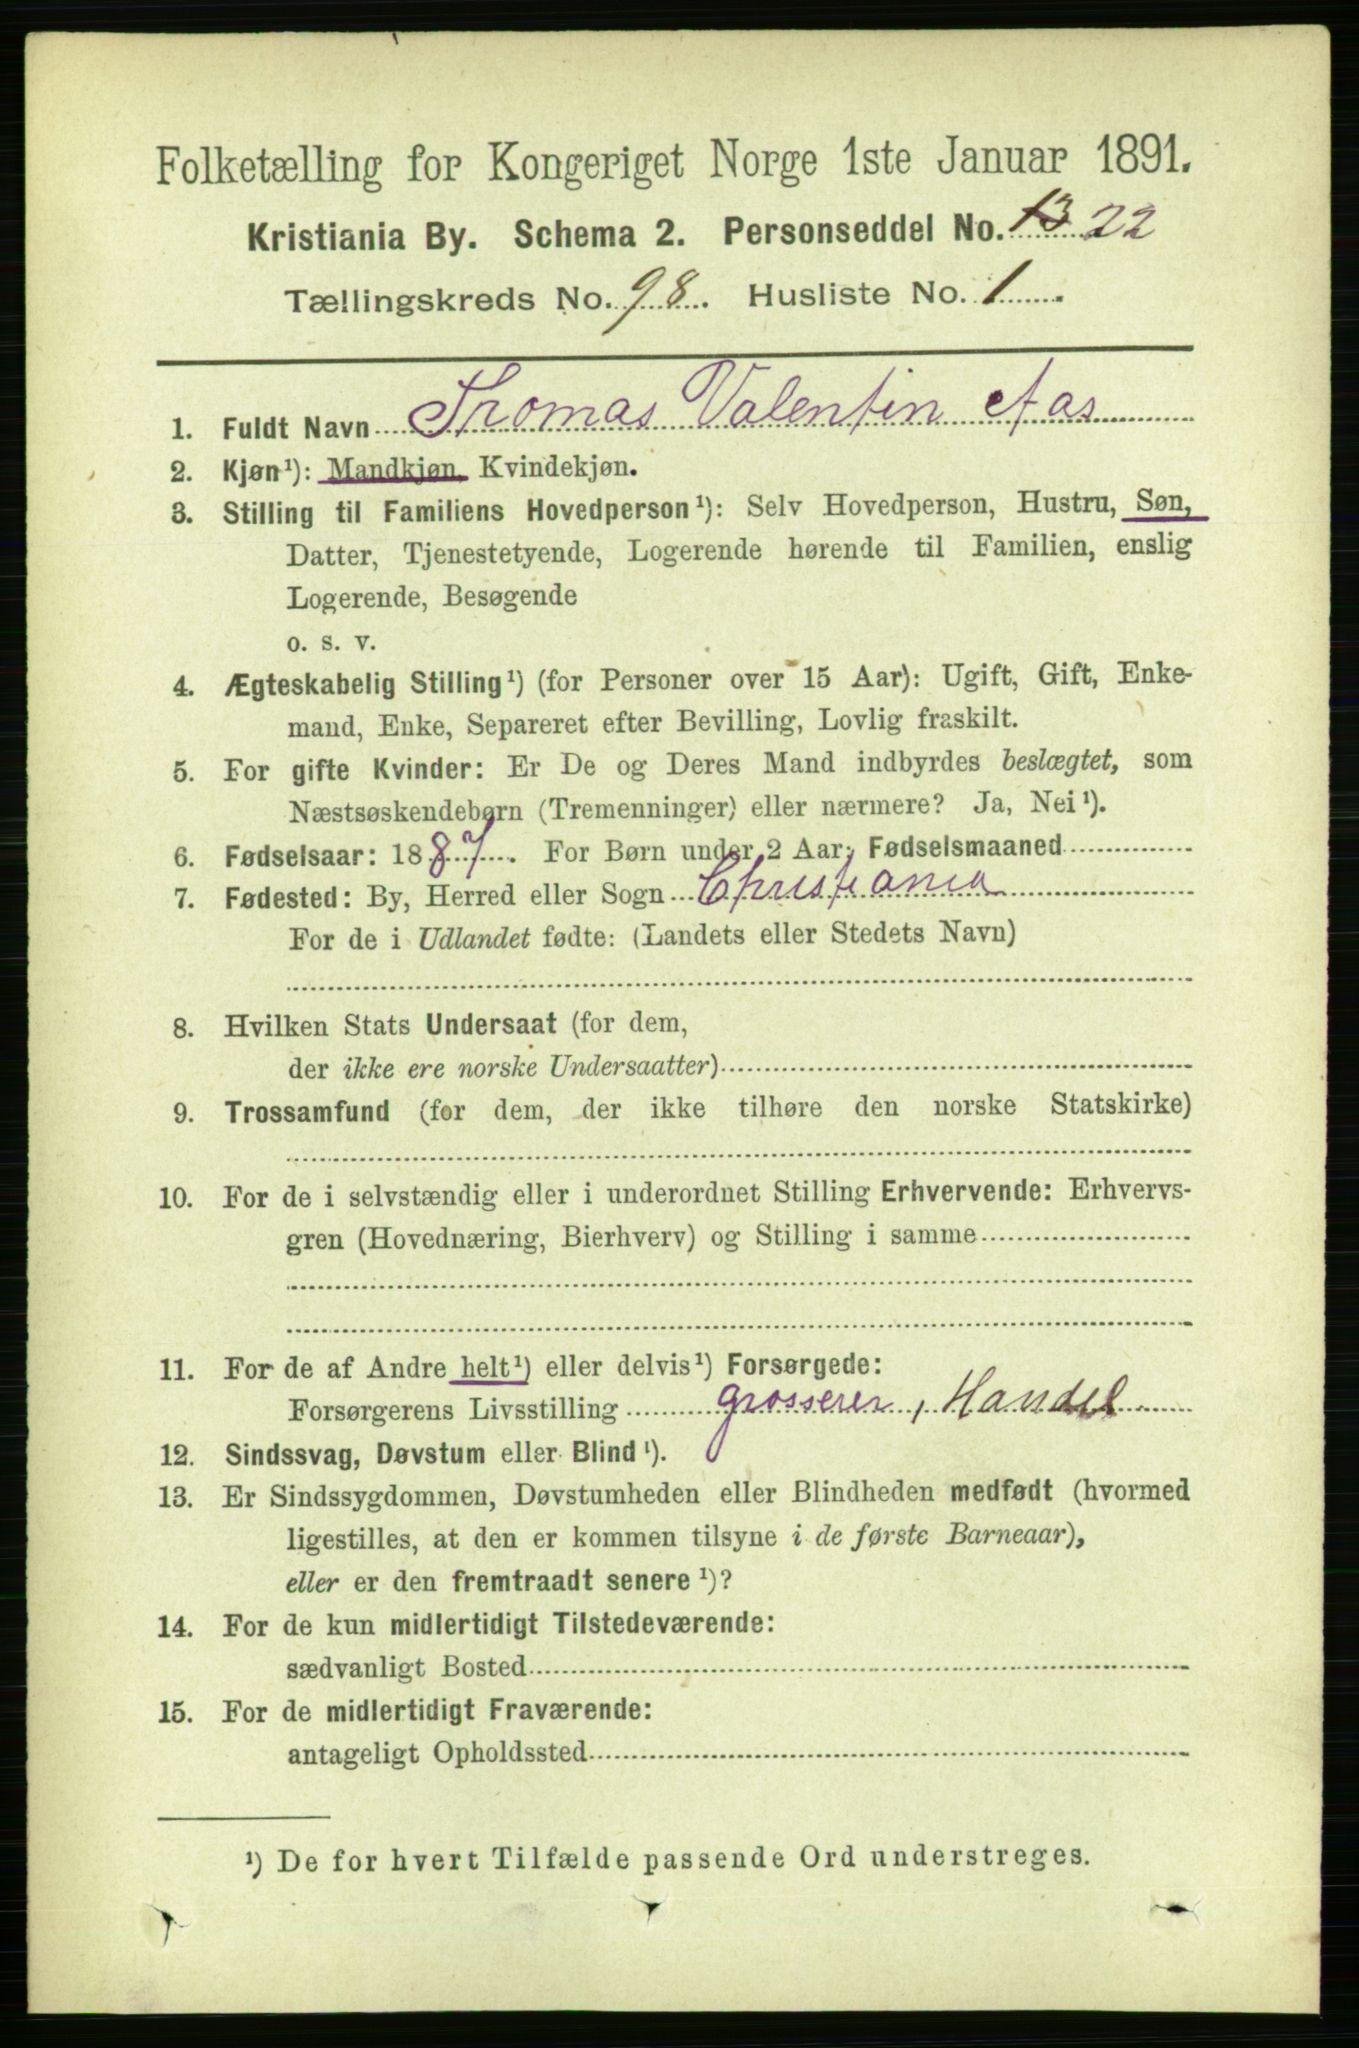 Folketælling for Kongeriget Norge 1ste Januar 1891.
Kristiania By. Schema 2. Personseddel No. 13 22
Tællingskreds No. 98. Husliste No. 1
1. Fuldt Navn Thomas Valentin Aas
2. Kjøn¹): Mandkjøn, Kvindekjøn.
3. Stilling til Familiens Hovedperson¹): Selv Hovedperson, Hustru, Søn,
Datter, Tjenestetyende, Logerende hørende til Familien, enslig
Logerende, Besøgende
o. s. v.
4. Ægteskabelig Stilling¹) (for Personer over 15 Aar): Ugift, Gift, Enke-
mand, Enke, Separeret efter Bevilling, Lovlig fraskilt.
5. For gifte Kvinder: Er De og Deres Mand indbyrdes beslægtet, som
Næstsøskendebørn (Tremenninger) eller nærmere? Ja, Nei¹).
6. Fødselsaar: 1887. For Børn under 2 Aar: Fødselsmaaned
7. Fødested: By, Herred eller Sogn Christiania
For de i Udlandet fødte: (Landets eller Stedets Navn)
8. Hvilken Stats Undersaat (for dem,
der ikke ere norske Undersaatter)
9. Trossamfund (for dem, der ikke tilhøre den norske Statskirke)
10. For de i selvstændig eller i underordnet Stilling Erhvervende: Erhvervs-
gren (Hovednæring, Bierhverv) og Stilling i samme
11. For de af Andre helt¹) eller delvis¹) Forsørgede:
Forsørgerens Livsstilling grosserer, Handel
12. Sindssvag, Døvstum eller Blind¹).
13. Er Sindssygdommen, Døvstumheden eller Blindheden medfødt (hvormed
ligestilles, at den er kommen tilsyne i de første Barneaar),
eller er den fremtraadt senere¹)?
14. For de kun midlertidigt Tilstedeværende:
sædvanligt Bosted
15. For de midlertidigt Fraværende:
antageligt Opholdssted
¹) De for hvert Tilfælde passende Ord understreges.